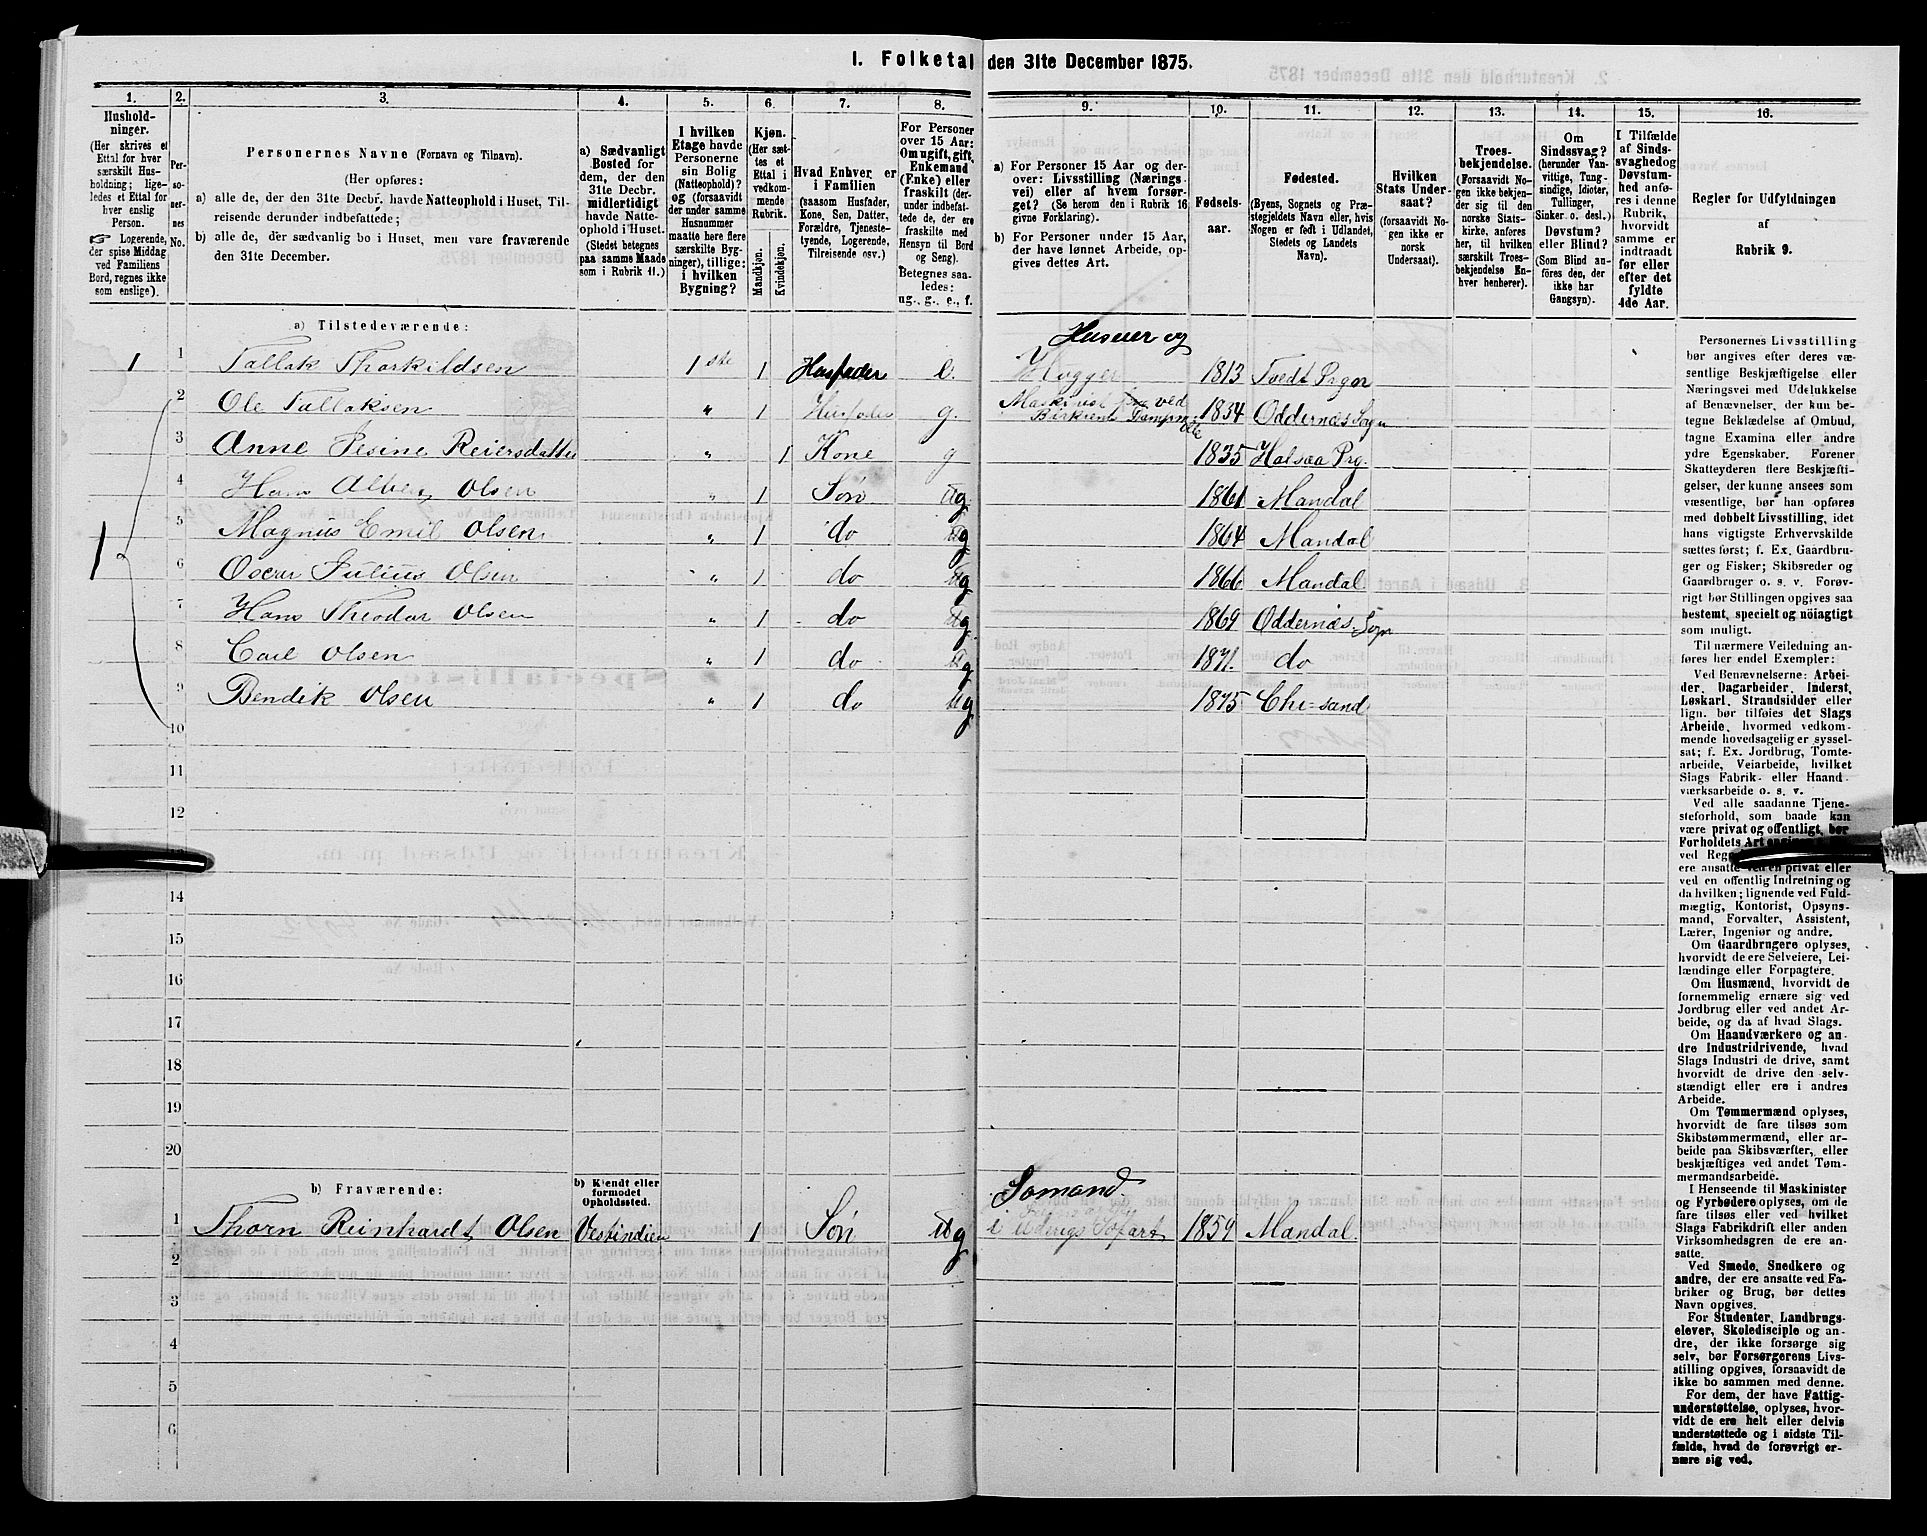 1. Folketal den 31te December 1875.
1. 2. 3. 4. 5. 6. 7. 8. 9. 10. 11. 12. 13. 14. 15. 16.
Hushold-
ninger.
(Her skrives et
Ettal for hver
særskilt Hus-
holdning; lige-
ledes et Ettal for
hver enslig
Person.
Logerende,
der spise Middag
ved Familiens
Bord, regnes ikke
som enslige).
Per-
so-
ner-
nes
No.
Personernes Navne (Fornavn og Tilnavn).
(Her opføres:
a) alle de, der den 31te Decbr. havde Natteophold i Huset, Til-
reisende derunder indbefattede;
b) alle de, der sædvanlig bo i Huset, men vare fraværende
den 31te December.
a) Sædvanligt
Bosted for
dem, der den
31te Decbr.
midlertidigt
havde Natte-
ophold i Huset.
(Stedet betegnes
paa samme Maade
som i Rubrik 11.)
I hvilken
Etage havde
Personerne
sin Bolig
(Natteophold)?
og (forsaavidt
der under samme
Husnummer
maatte høre flere
særskilte Byg-
ninger), tillige:
i hvilken
Bygning?
Kjøn.
(Her sæt-
tes et
Ettal i
vedkom-
mende
Rubrik.
Mandkjøn.
Kvindekjøn.
Hvad Enhver er
i Familien
(saasom Husfader,
Kone, Søn, Datter,
Forældre, Tjeneste-
tyende, Logerende,
Tilreisende osv.)
For Personer
over 15 Aar:
Om ugift, gift,
Enkemand
(Enke) eller
fraskilt (der-
under indbefat-
tede de, der ere
fraskilte med
Hensyn til Bord
og Seng).
Betegnes saa-
ledes:
ug., g., e., f.
a) For Personer 15 Aar og der-
over: Livsstilling (Nærings-
vei) eller af hvem forsør-
get? (Se herom den i Rubrik 16
givne Forklaring).
b) For Personer under 15 Aar,
der have lønnet Arbeide, op-
gives dettes Art.
Fødsels-
aar.
Fødested.
(Byens, Sognets og Præ-
stegjeldets Navn eller, hvis
Nogen er født i Udlandet,
Stedets og Landets
Navn).
Hvilken
Stats Under-
saat?
(forsaavidt No-
gen ikke er
norsk
Undersaat).
Troes-
bekjendelse.
(Forsaavidt No-
gen ikke bekjen-
der sig til den
norske Stats-
kirke, anføres
her, til hvilken
særskilt Troes-
bekjendelse En-
hver henhører).
Om
Sindssvag?
(herunder Van-
vittige, Tung-
sindige, Idioter,
Tullinger,
Sinker o. desl.)
Døvstum?
eller Blind?
(Som Blind an-
føres den, der
ikke har
Gangsyn).
I Tilfælde
af Sinds-
svaghed og
Døvstum-
hed anfø-
res i denne
Rubrik,
hvorvidt
samme er
indtraadt
før eller
efter det
fyldte
4de Aar.
Regler for Udfyldningen
af
Rubrik 9.
a) Tilstedeværende:
1 1 Tallak Thorkildsen 1ste 1 Husfader e. Huseier og Hugger 1813 Tvedt Prgn
2 Ole Tallaksen " 1 Husfader g. Maskinist ved 1834 Oddernæs Sogn
3 Anne Jesine Reiersdatter " 1 Kone g 1835 Halsaa Prg.
1
4 Hans Olsen " 1 Søn ug 1861 Mandal
5 Magnus Emil Olsen " 1 do ug 1864 Mandal
6 Oscar Julius Olsen " 1 do ug 1866 Mandal
7 Hans Theodor Olsen " 1 do ug 1869 Oddernæs Sogn
8 Carl Olsen " 1 do ug 1871. do
9 Bendik Olsen " 1 do ug 1875 Chr=sand
10
11
12
14
15
16
17
18
19
20
b) Fraværende:
b) Kjendt eller
formodet
Opholdssted.
1 Thorn Reinhardt Olsen Vestindien 1 Søn ug Sømand i Udenrigs Søfart 1859 Mandal.
2
3
4
5
6
Personernes Livsstilling
bør angives efter deres væ-
sentlige Beskjæftigelse eller
Næringsvei med Udelukkelse
af Benævnelser, der kun be-
tegne Beklædelse af Ombud,
tagne Examina eller andre
ydre Egenskaber. Forener
Skatteyderen flere Beskjæfti-
gelser, der kunne ansees som
væsentlige, bør han opføres
med dobbelt Livsstilling, idet
hans vigtigste Erhvervskilde
sættes først; f. Ex. Gaardbru-
ger og Fisker; Skibsreder og
Gaardbruger o. s. v. Forøv-
rigt bør Stillingen opgives saa
bestemt, specielt og nöiagtigt
som muligt.
Til nærmere Veiledning an-
føres her endel Exempler:
Ved Benævnelserne: Arbei-
der, Dagarbeider, Inderst,
Løskarl, Strandsidder eller
lign. bør tilføies det Slags
Arbeide, hvormed vedkom-
mende hovedsagelig er syssel-
sat; f. Ex. Jordbrug, Tomte-
arbeide, Veiarbeide, hvilket
Slags Fabrik- eller Haand-
værksarbeide o. s. v.
Ved alle saadanne Tjene-
steforhold, som baade kan
være privat og offentligt, bør
Forholdets Art
ved
ere ansatte ved en privat eller
ved en offentlig Indretning og
da hvilken; lignende ved Fuld-
mægtig, Kontorist, Opsyns-
mand, Forvalter, Assistent,
Lærer, Ingeniør og andre.
Om Gaardbrugere oplyses,
hvorvidt de ere Selveiere, Lei-
lændinge eller Forpagtere.
Om Husmænd, hvorvidt de
fornemmelig ernære sig ved
Jordbrug eller ved andet Ar-
beide, og da af hvad Slags.
Om Haandværkere og an-
dre Industridrivende, hvad
Slags Industri de drive, samt
hvorvidt de drive den selv-
stændigt eller ere i andres
Arbeide.
Om Tømmermænd oplyses,
hvorvidt de fare tilsøs som
Skibstømmermænd, eller ar-
beide paa Skibsværfter, eller
beskjæftiges ved andet Tøm-
mermandsarbeide.
I Henseende til Maskinister
og Fyrbødere oplyses, om de
fare tilsøs eller ved hvilket
Slags Fabrikdrift eller anden
Virksomhedsgren de ere an-
satte.
Ved Smede, Snedkere og
andre, der ere ansatte ved Fa-
briker og Brug, bør dettes
Navn opgives.
For Studenter, Landbrugs-
elever, Skoledisciple og an-
dre, der ikke forsørge sig
selv, bør Forsørgerens Livs-
stilling opgives, forsaavidt de
ikke bo sammen med denne.
For dem, der have Fattig-
understøttelse, oplyses, hvor-
vidt de ere helt eller delvis
understøttede og i sidste Til-
fælde, hvad de forøvrigt er-
nære sig ved.